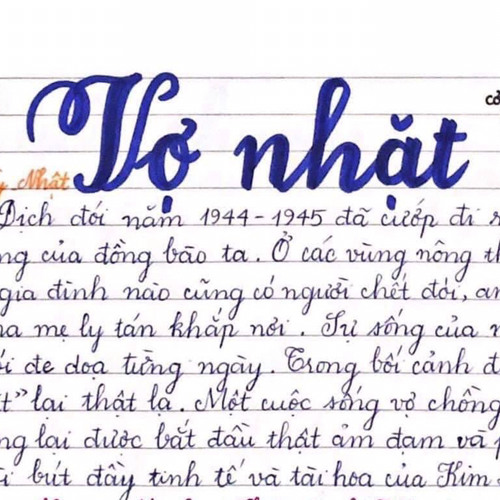 Vợ nhặt
Nhặt
Dịch đói năm 1944-1945 đã cướp đi
của đồng bào ta. Ở các vùng nông
gia đình nào cũng có người chết đói,
mẹ ly tán khắp nơi. Sự sống của
đe doạ từng ngày. Trong bối cảnh
lại thật lạ. Một cuộc sống vợ chồng
lại được bắt đầu thật ảm đạm và
bút đầy tinh tế và tài hoa của Kim